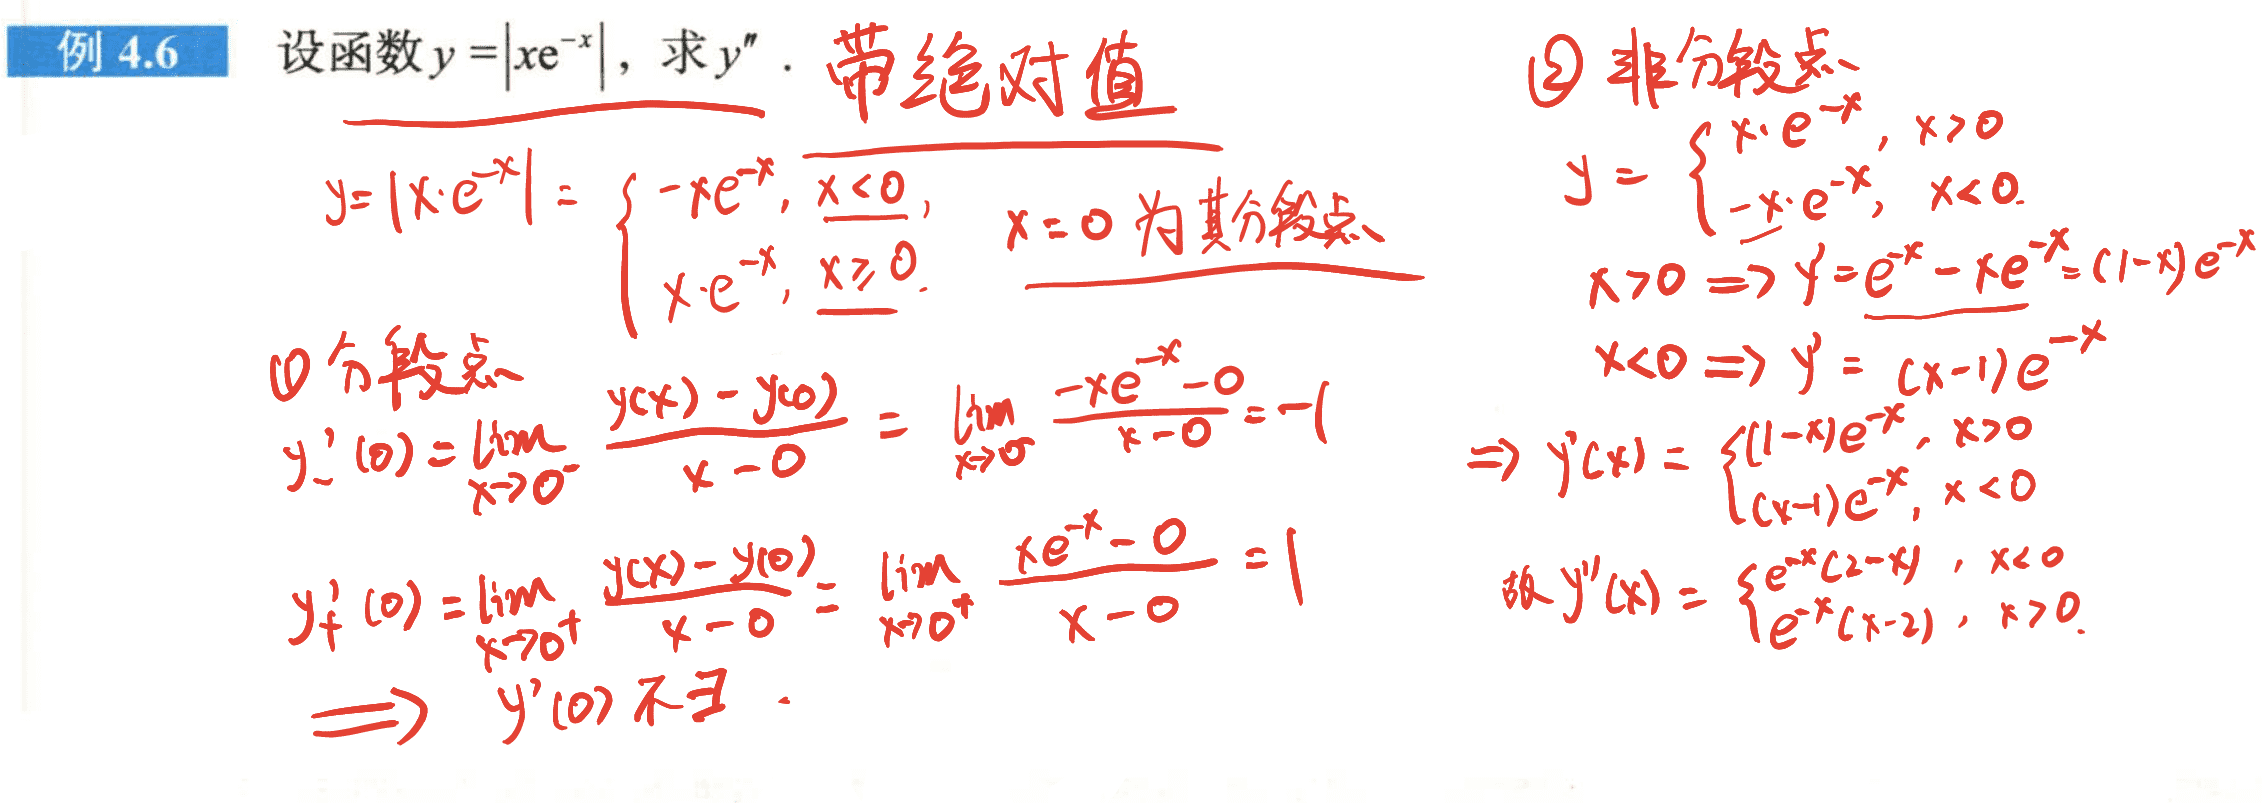 例 4.6 设函数 y = |xe⁻ˣ|，求 y″ .
带绝对值
y = |x·e⁻ˣ| = { -xe⁻ˣ, x<0,
x·e⁻ˣ, x≥0.
x=0 为其分段点
① 分段点
y₋'(0) = lim x→0⁻ (y(x) - y(0))/(x-0) = lim x→0⁻ (-xe⁻ˣ - 0)/(x-0) = -1
y₊'(0) = lim x→0⁺ (y(x) - y(0))/(x-0) = lim x→0⁺ (xe⁻ˣ - 0)/(x-0) = 1
⟹ y'(0) 不∃ .
② 非分段点
y = { x·e⁻ˣ, x>0
-x·e⁻ˣ, x<0.
x>0 ⟹ y' = e⁻ˣ - xe⁻ˣ = (1-x)e⁻ˣ
x<0 ⟹ y' = (x-1)e⁻ˣ
⟹ y'(x) = { (1-x)e⁻ˣ, x>0
(x-1)e⁻ˣ, x<0
故 y''(x) = { e⁻ˣ(2-x), x<0
e⁻ˣ(x-2), x>0.